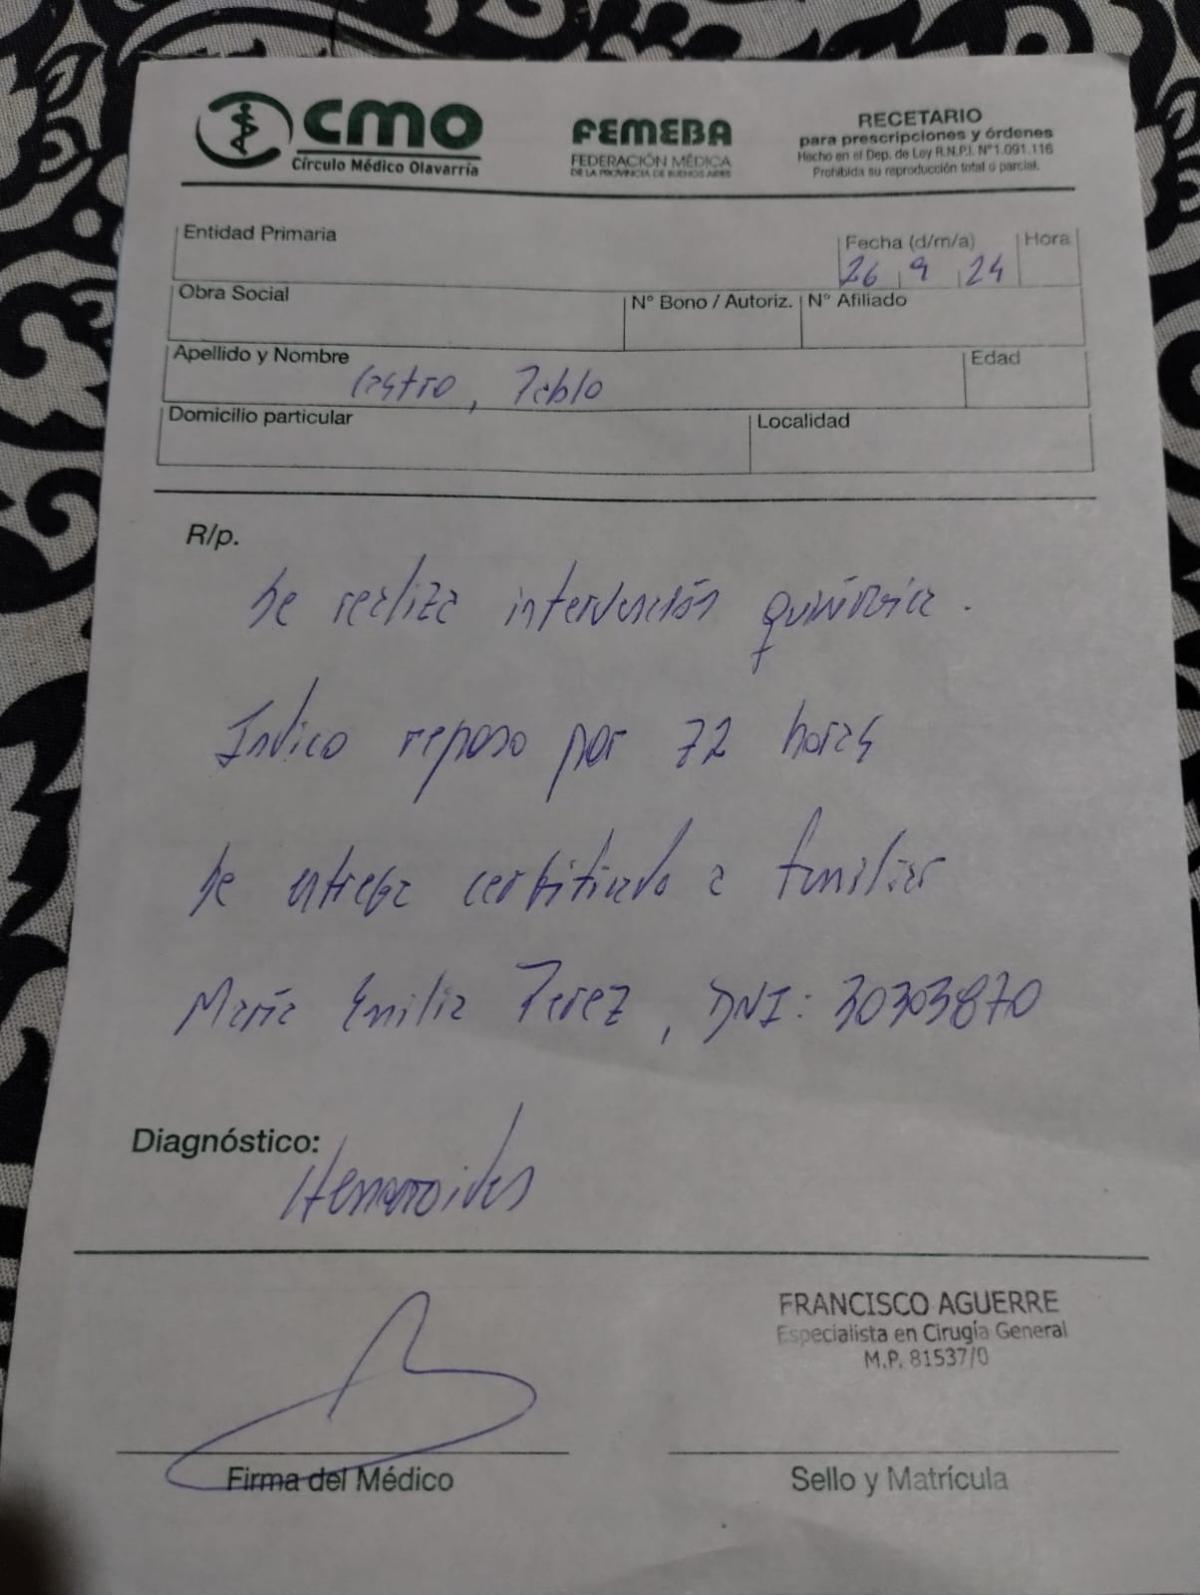 CMO
Círculo Médico Olavarría
FEMEBA
FEDERACIÓN MÉDICA
DE LA PROVINCIA DE BUENOS AIRES
RECETARIO
para prescripciones y órdenes
Hecho en el Dep. de Ley R.N.P.I. N°1.091.116
Prohibida su reproducción total o parcial.
Entidad Primaria
Fecha (d/m/a) Hora
26 9 24
Obra Social N° Bono / Autoriz. N° Afiliado
Apellido y Nombre Edad
Castro, Pablo
Domicilio particular Localidad
R/p.
Se realiza intervención quirúrgica.
Indico reposo por 72 horas
Se entrega certificado a familiar
María Emilia Perez, DNI: 30303870
Diagnóstico:
Hemorroides
FRANCISCO AGUERRE
Especialista en Cirugía General
M.P. 81537/0
Firma del Médico Sello y Matrícula